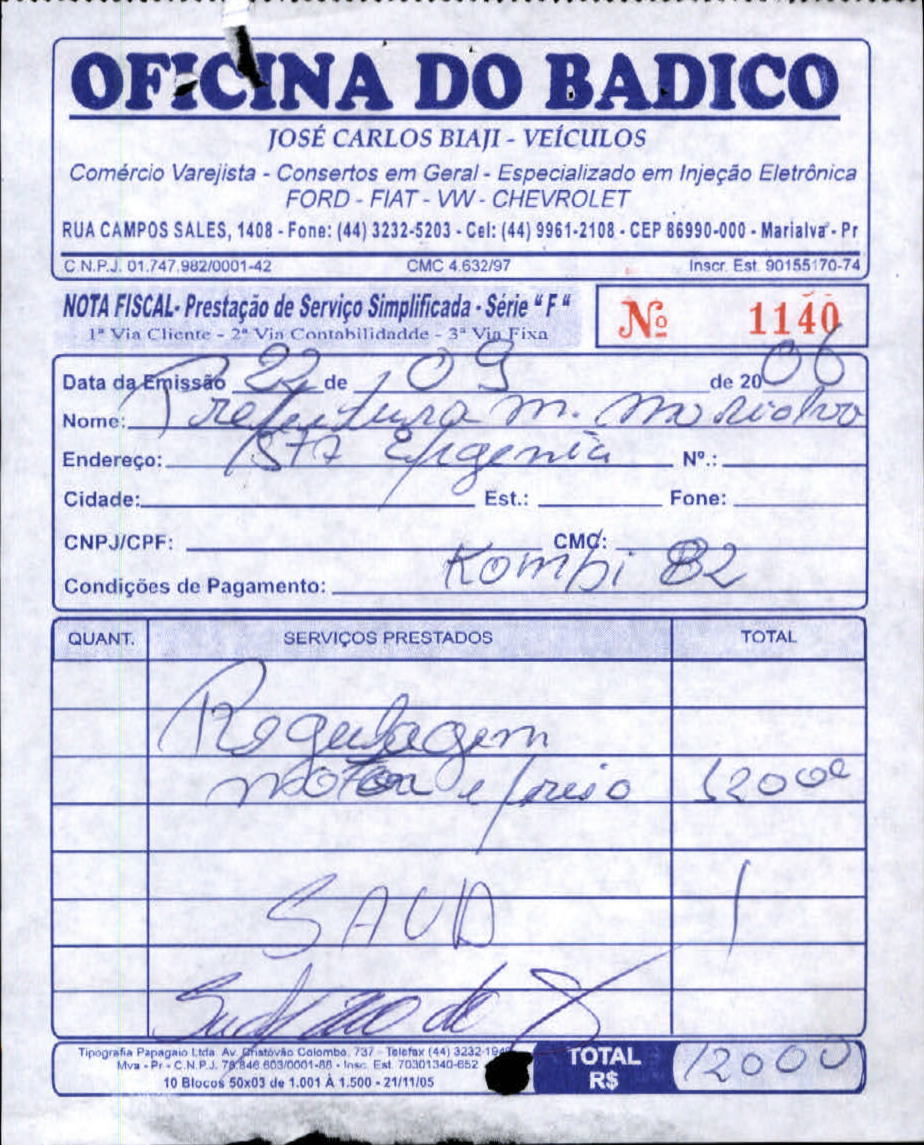 OFICINA DO BADICO
JOSÉ CARLOS BIAJI - VEÍCULOS
Comércio Varejista - Consertos em Geral - Especializado em Injeção Eletrônica
FORD - FIAT - VW - CHEVROLET
RUA CAMPOS SALES, 1408 - Fone: (44) 3232-5203 - Cel: (44) 9961-2108 - CEP 86990-000 - Marialva - Pr
C.N.P.J. 01.747.982/0001-42 CMC 4.632/97 Inscr. Est. 90155170-74
NOTA FISCAL- Prestação de Serviço Simplificada - Série "F"
Nº 1140
1ª Via Cliente - 2ª Via Contabilidadde - 3ª Via Fixa
Data da Emissão 22 de 09 de 2006
Nome: Prefeitura M. Marialva
Endereço: Nº.:
Cidade: Est.: Fone:
CNPJ/CPF: CMC:
Condições de Pagamento: Kombi 82
QUANT. SERVIÇOS PRESTADOS TOTAL
Regulagem
motor e freio 12000
SAUD
Tipografia Papagaio Ltda. Av. Cristóvão Colombo, 737 - Telefax (44) 3232-194
Mva - Pr - C.N.P.J. 78.846.603/0001-88 - Insc. Est. 70301340-652
10 Blocos 50x03 de 1.001 À 1.500 - 21/11/05
TOTAL R$ 12000